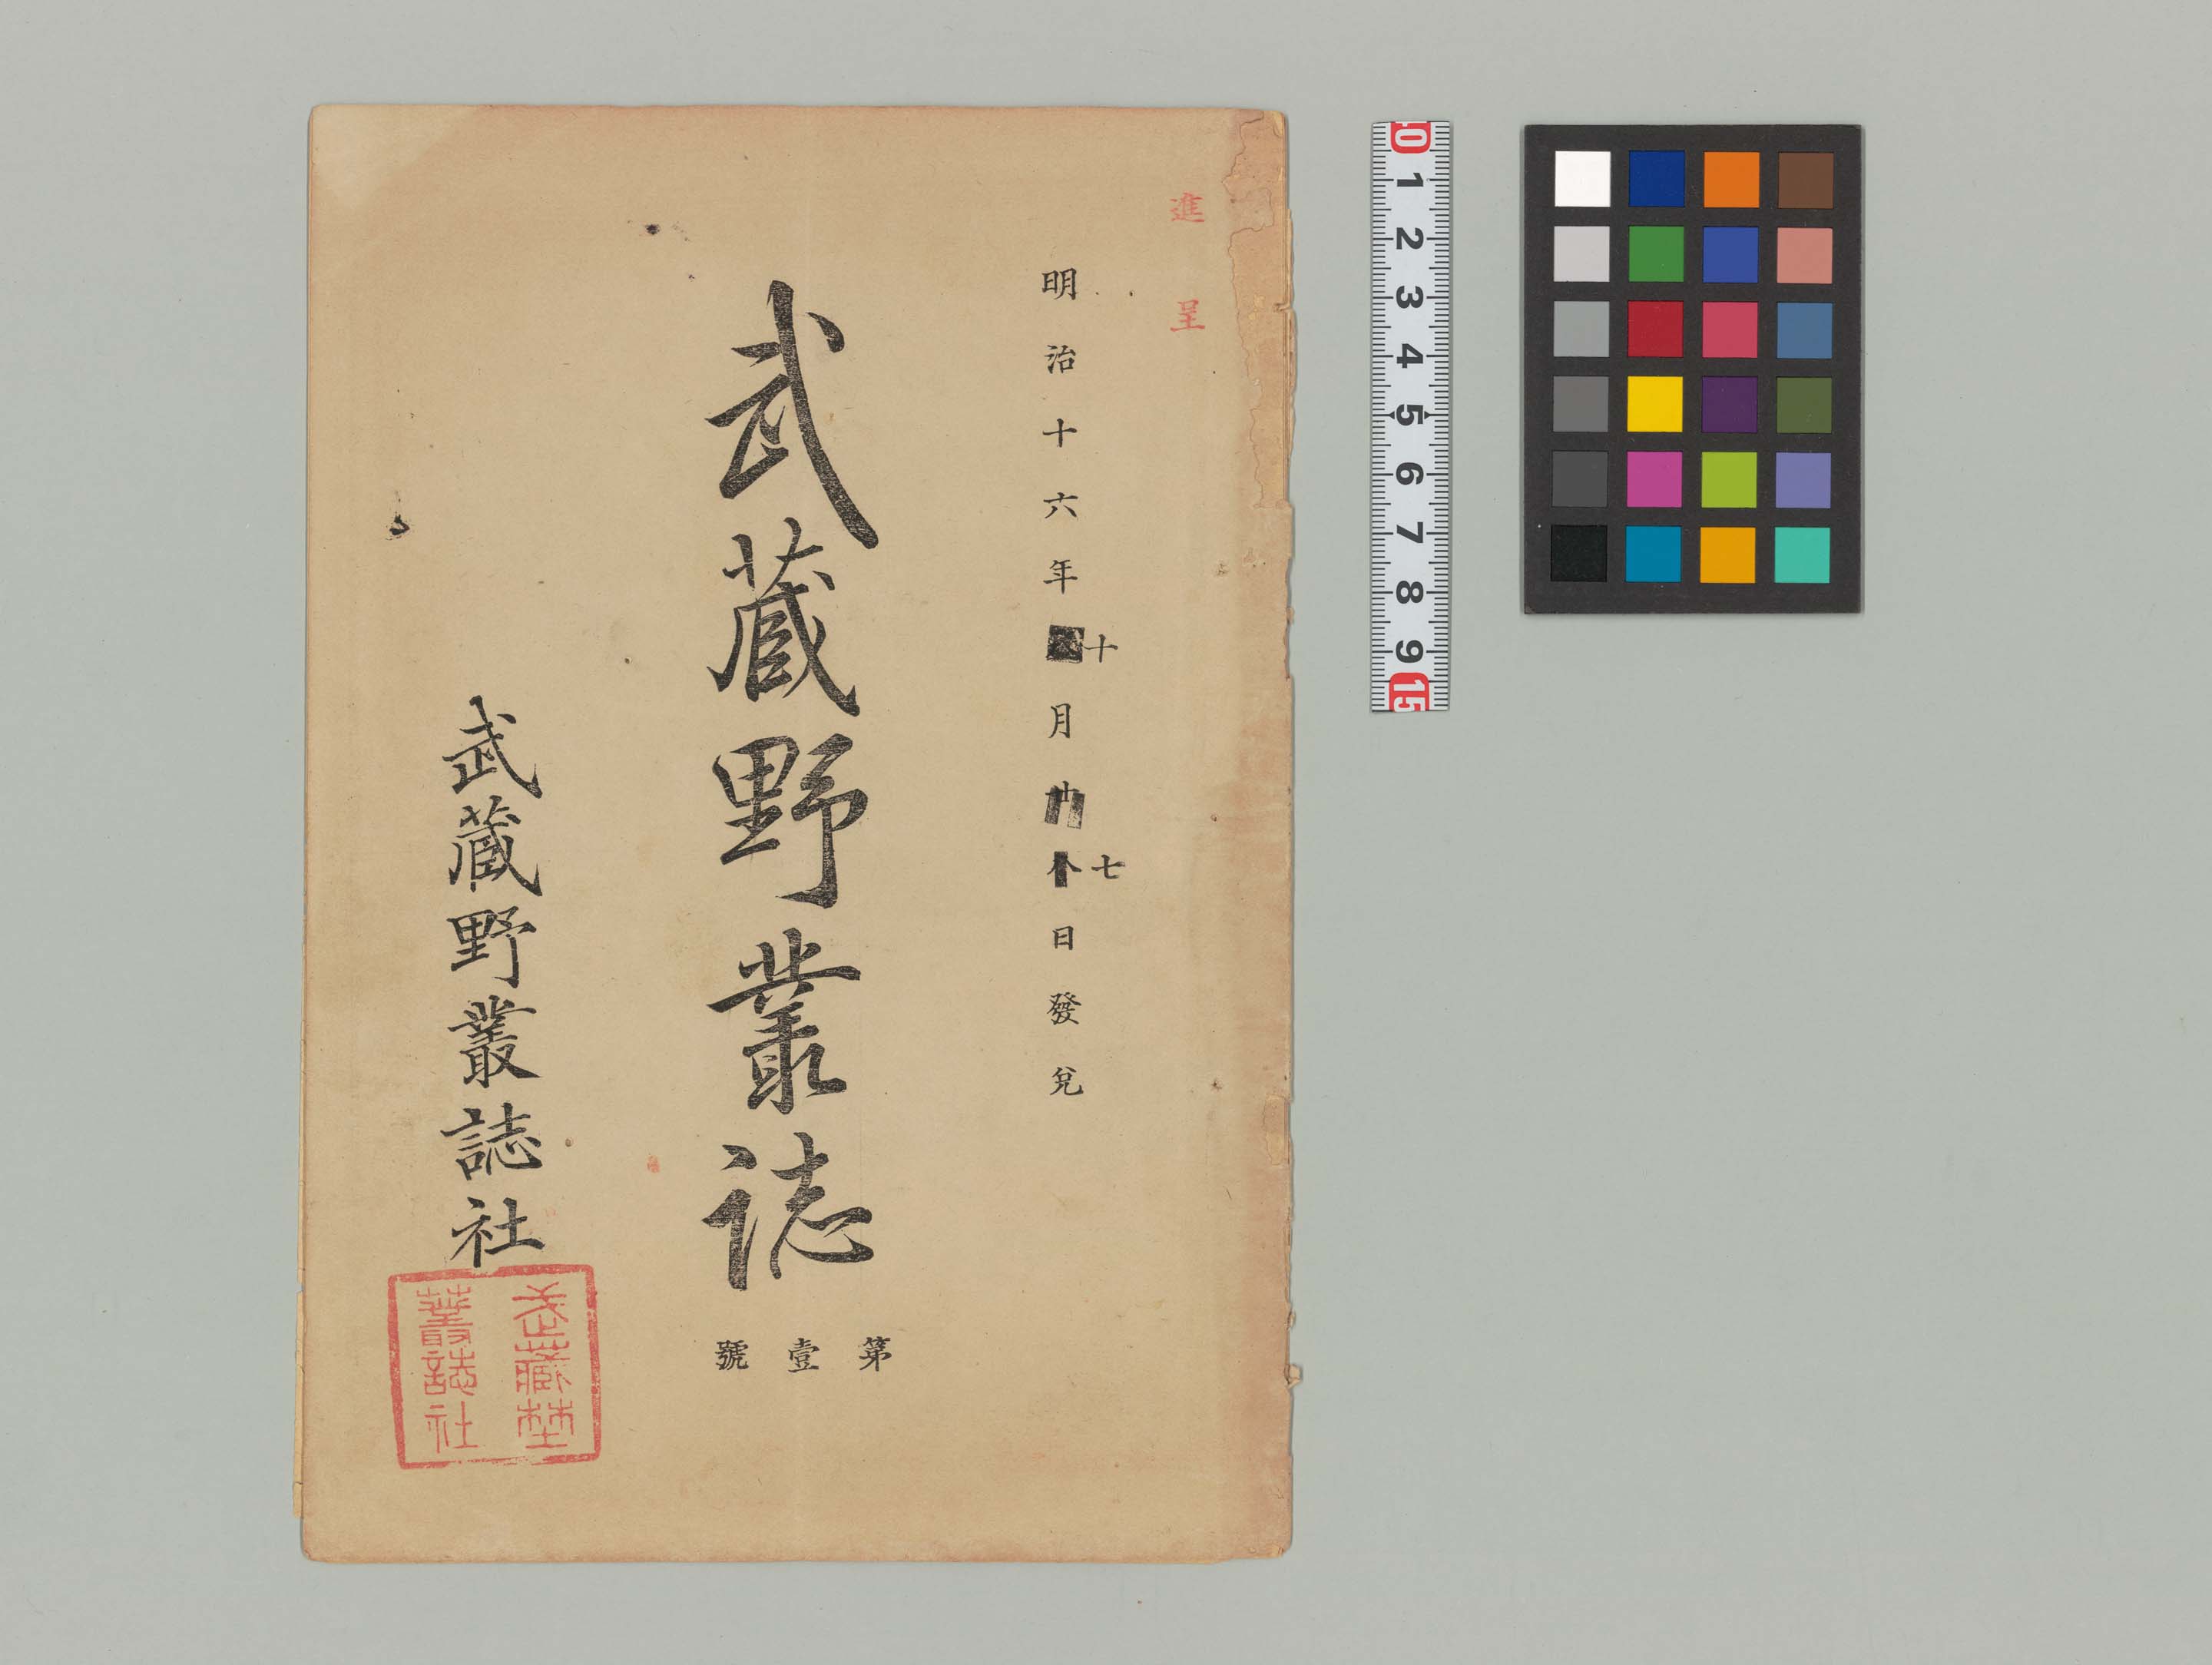 進呈
明治十六年十月七日發兌
武藏野叢誌
第壹號
武藏野叢誌社
武藏埜
叢誌社
0 1 2 3 4 5 6 7 8 9 15